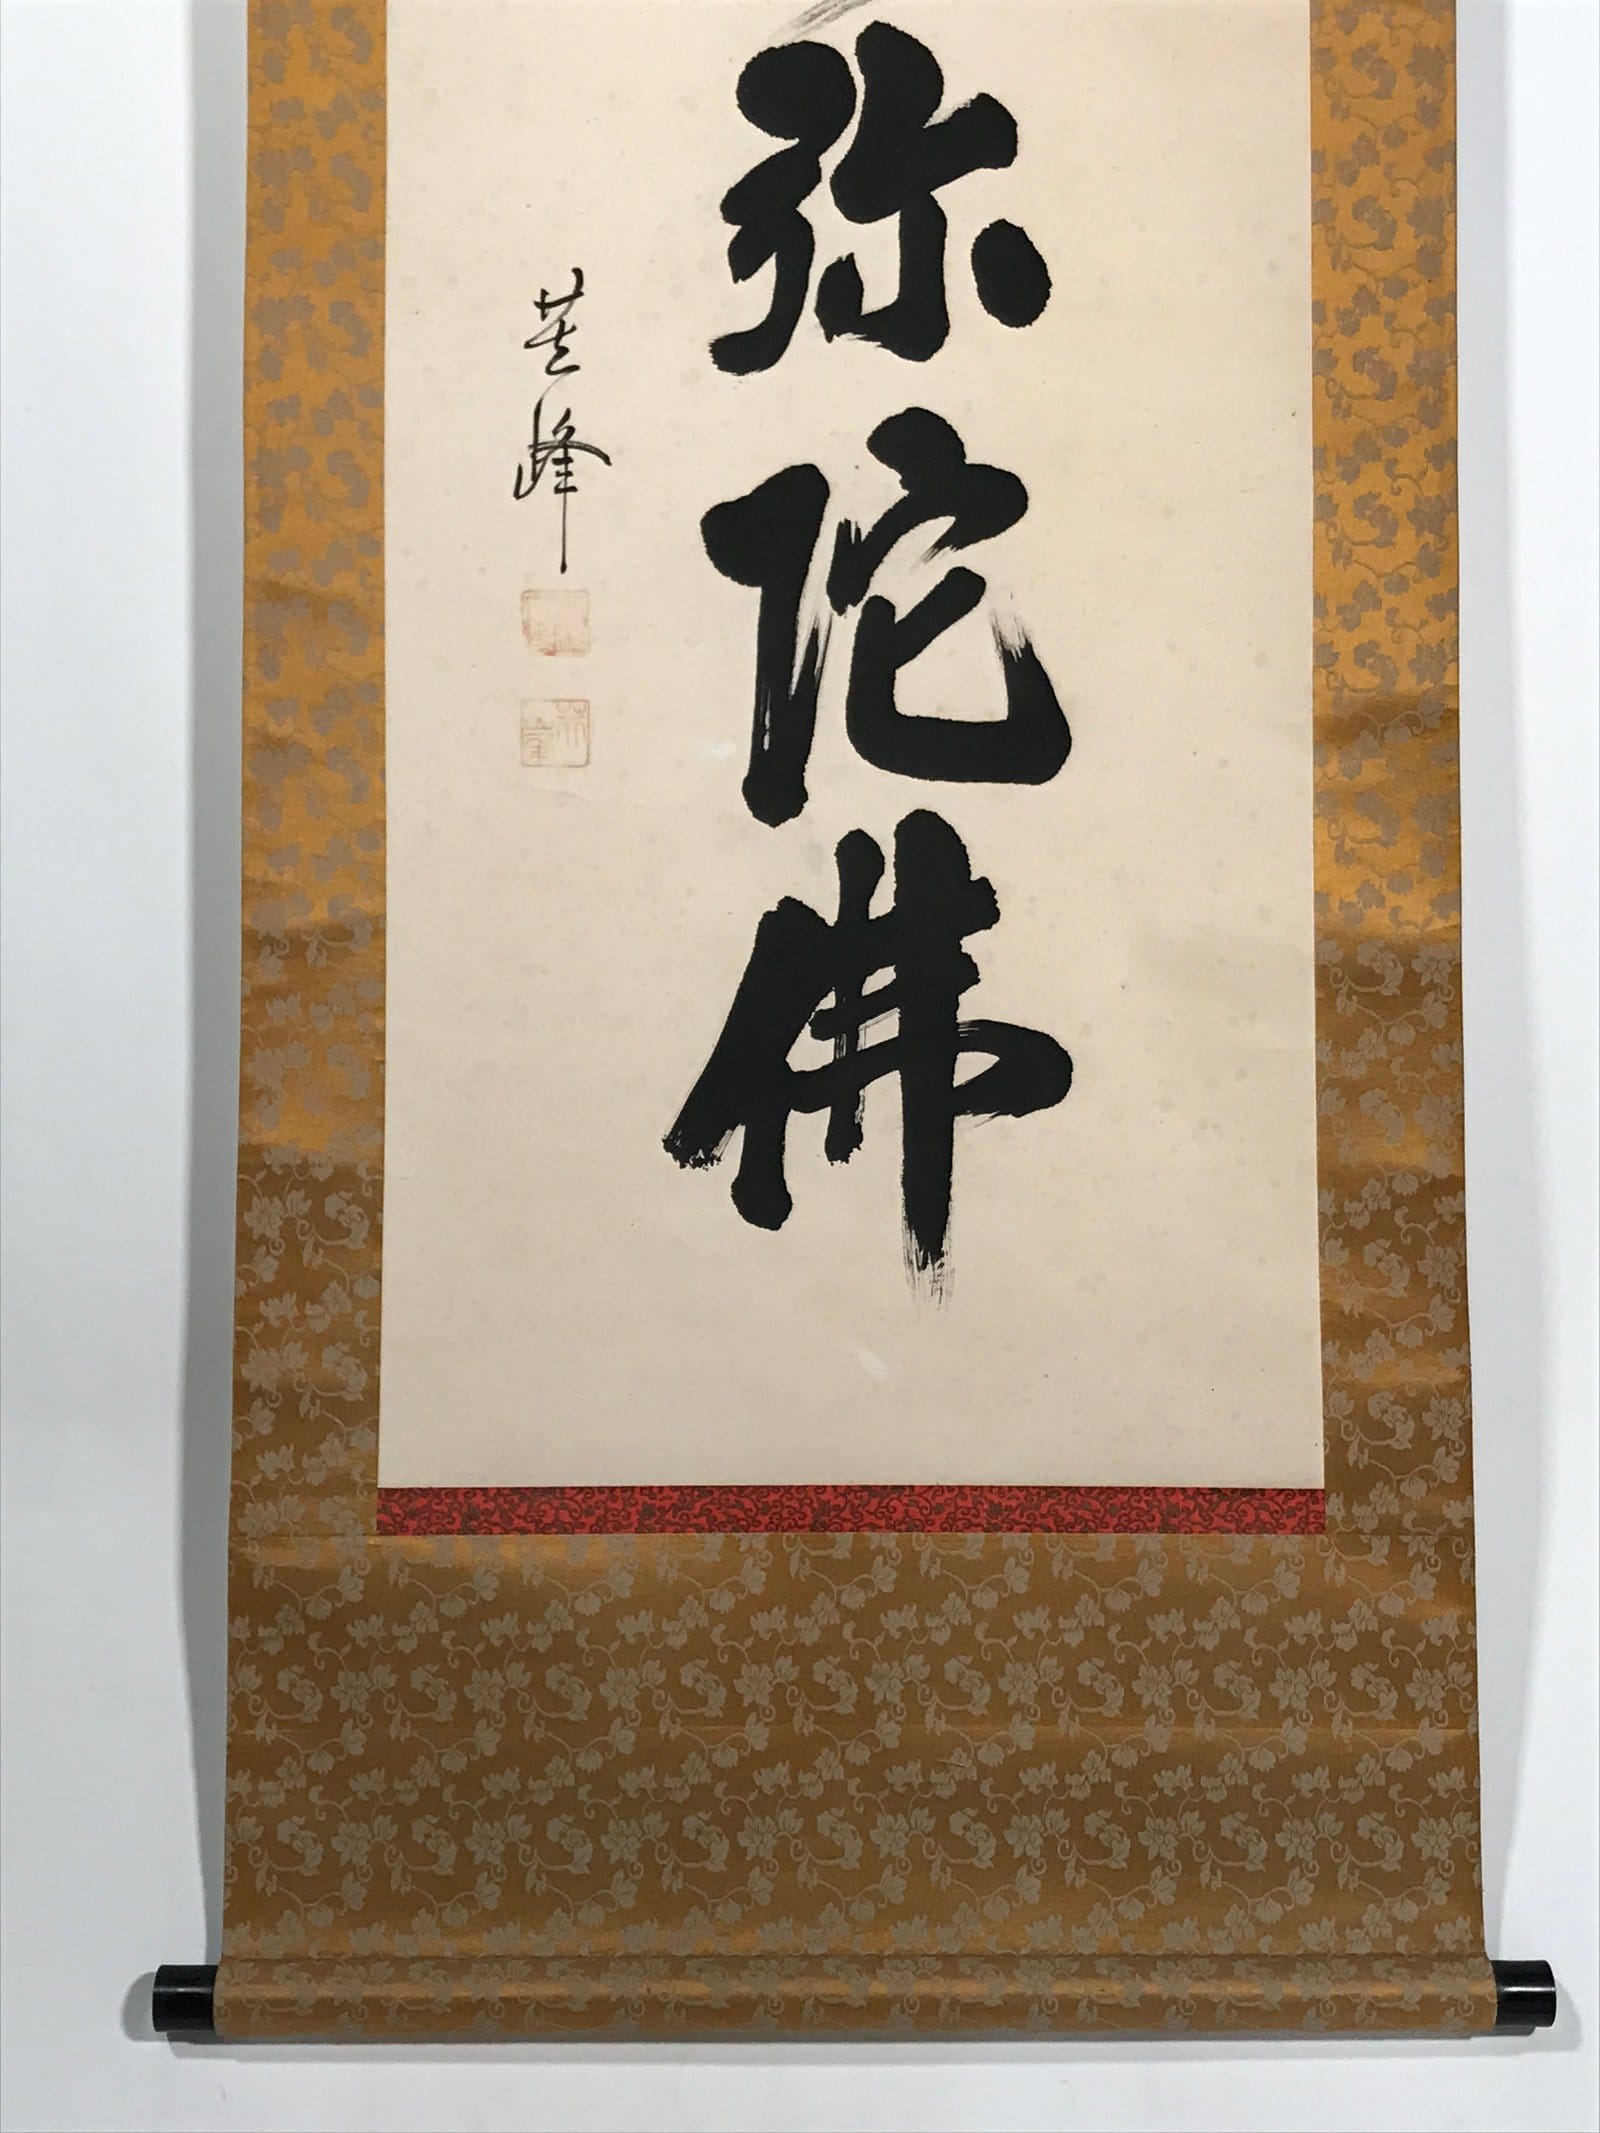 弥陀佛
芝峰